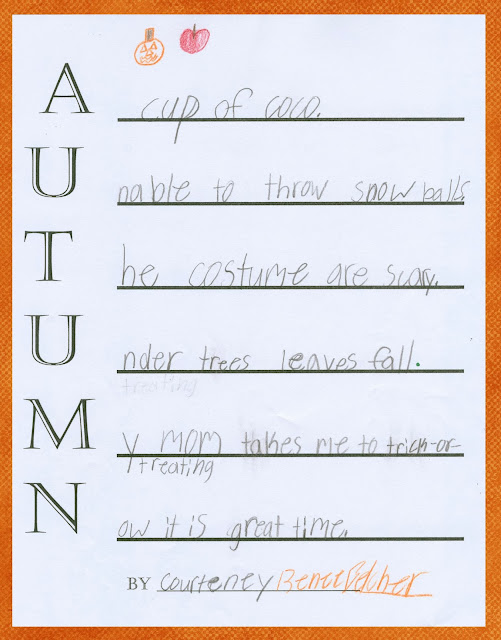 A cup of coco.
Unable to throw snowballs.
The costume are scary.
Under trees leaves fall.
treating
My mom takes me to trick-or-
treating
Now it is great time.
BY Courteney Renee Belcher